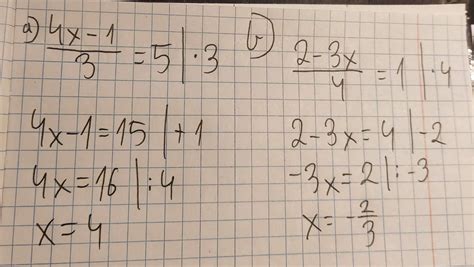 a) (4x-1)/3 = 5 | ·3
4x-1=15 | +1
4x=16 | :4
x=4
b) (2-3x)/4 = 1 | ·4
2-3x=4 | -2
-3x=2 | :-3
x=-2/3